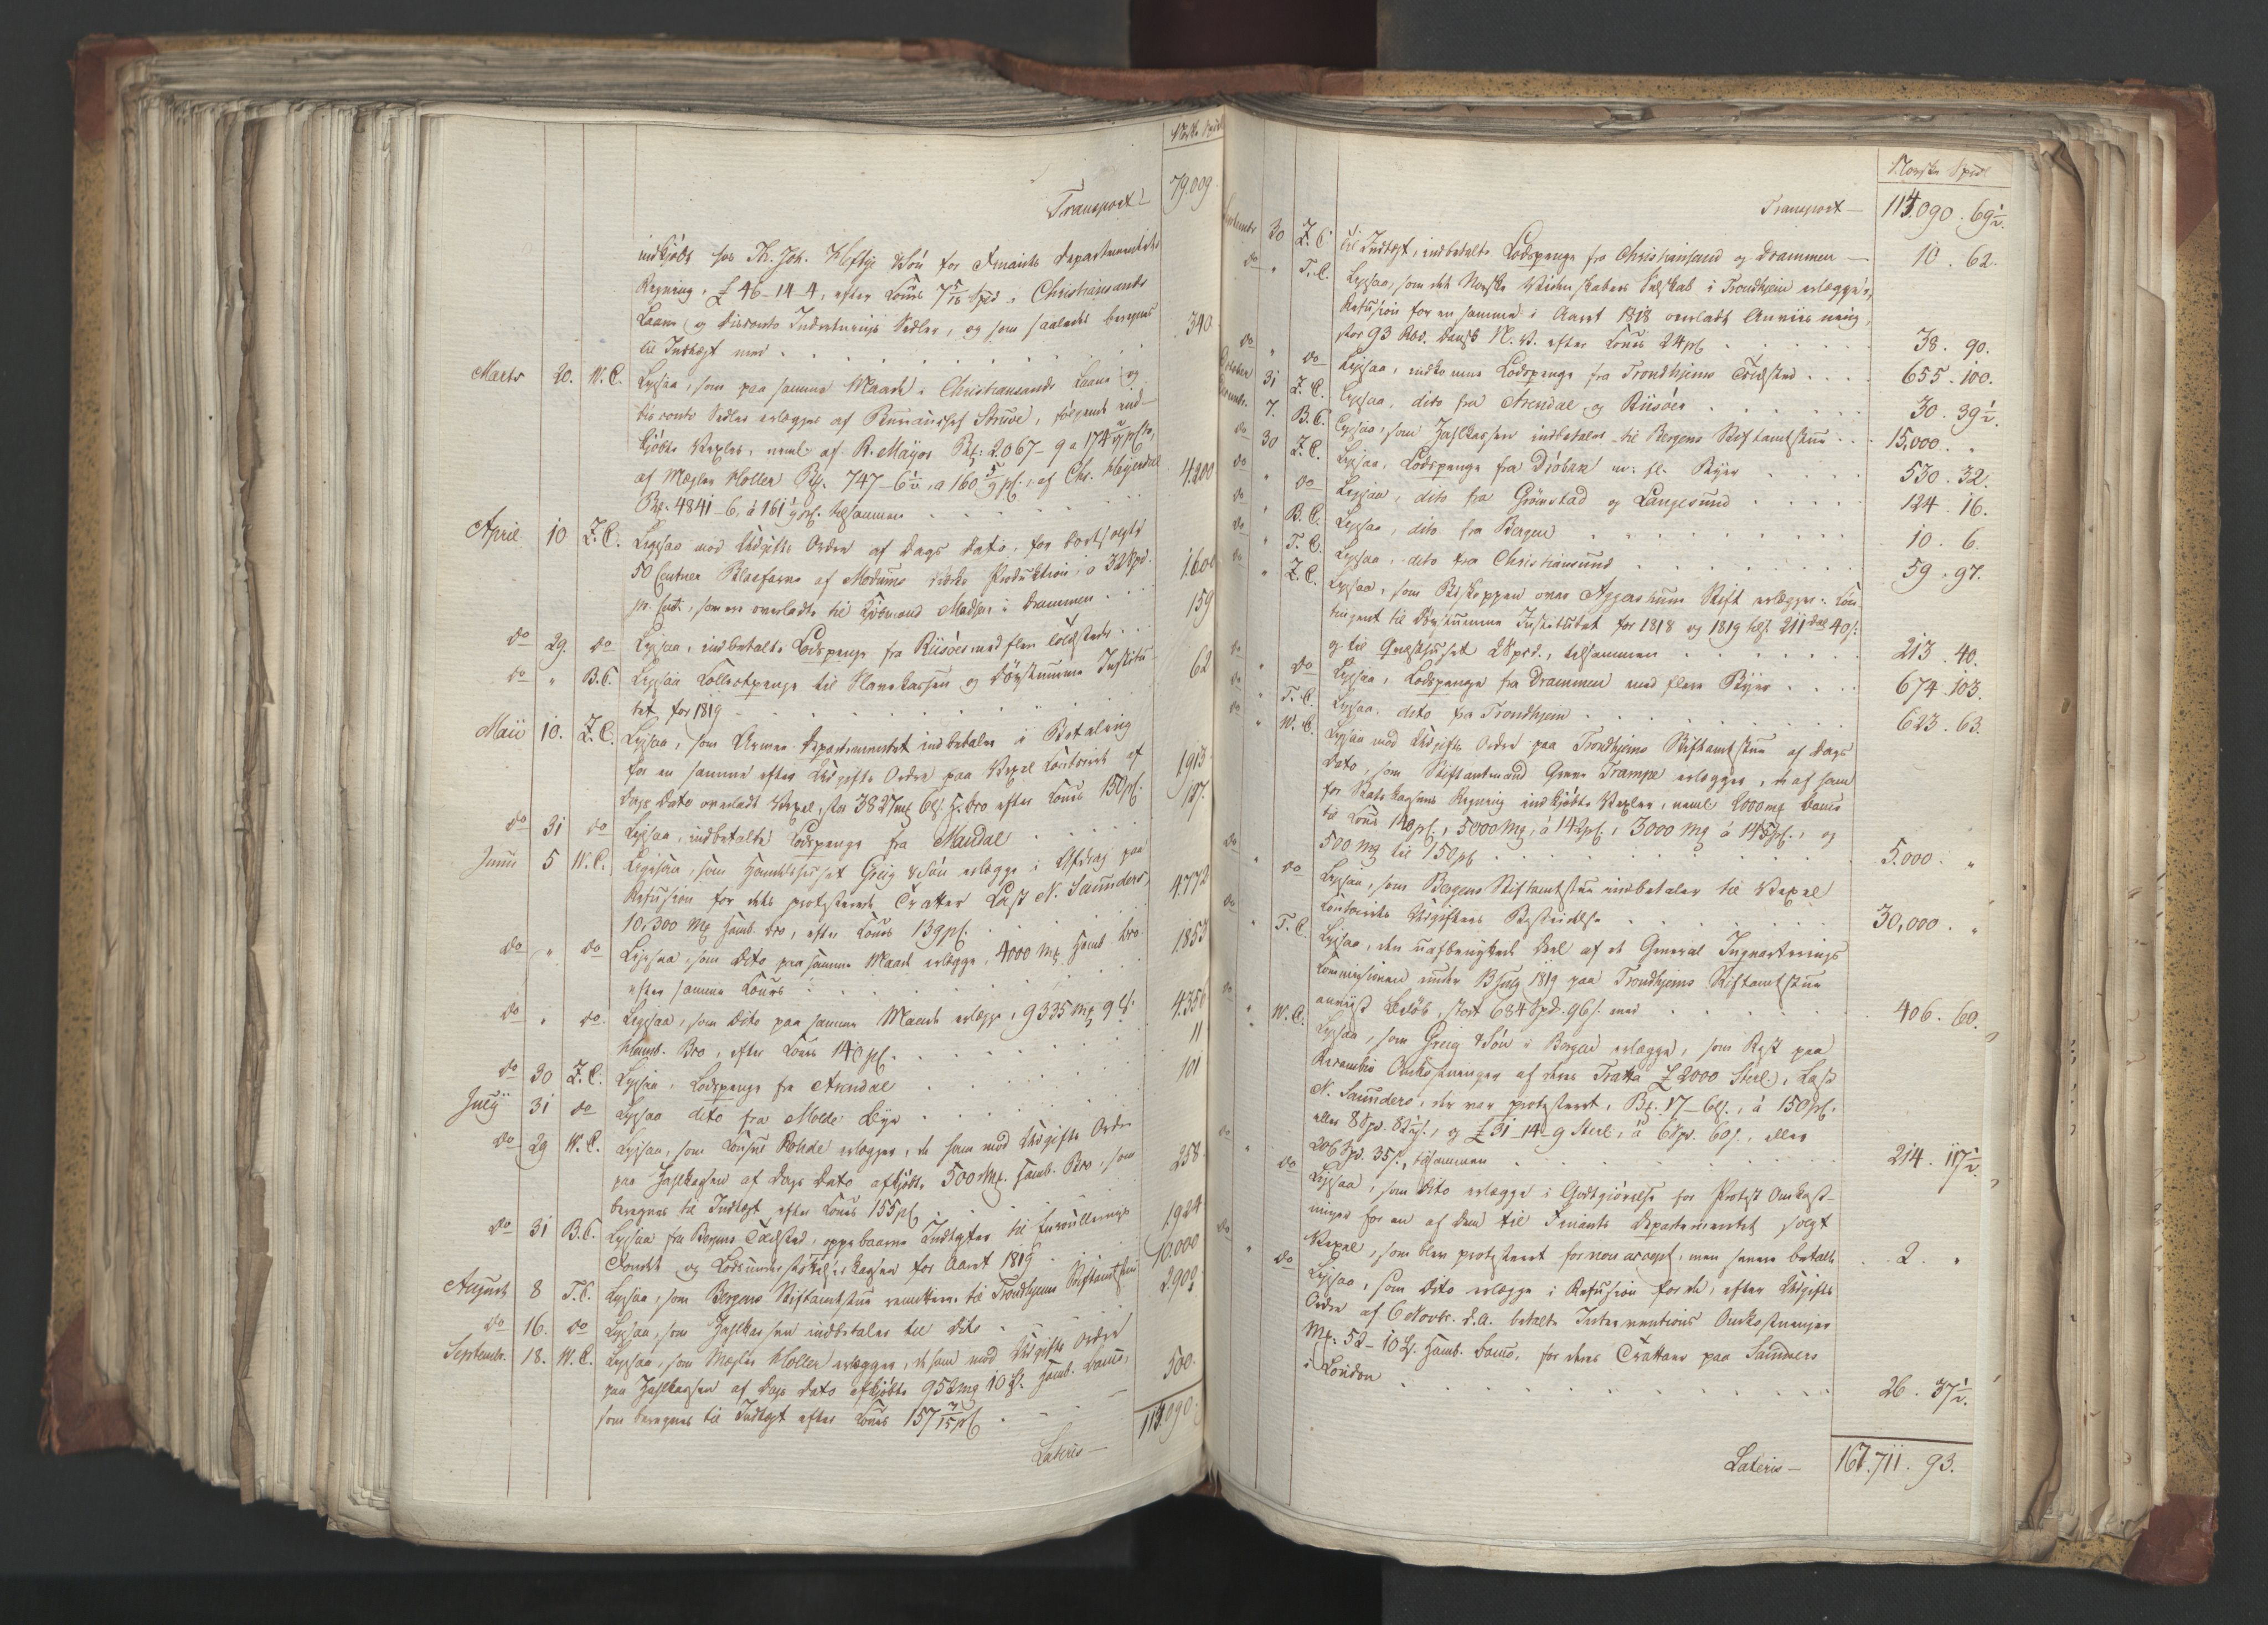 Norske Spdl
Transport — 79.009
indkjøbt hos Th. Joh. Heftye & Søn for Finants Departementets
Regning, £ 46-14-4, efter Cours 7 5/18 Spd i Christiansands
Laane og Disconto Indretnings Sedler, og som saaledes beregnes
til Indtægt med . . . 340
Marts 20. W.C. Ligesaa, som paa samme Maade i Christiansands Laane og
Disconto Sedler erlægges af Bureauchef Struve, følgende ind-
kjøbte Vexler, neml: af R. Mayor Bf: 2.067-9 a 174
af Mægler Møller Bf. 747-6, a 160, af Chr. Heyerdal
Bf. 4841-6, á 161 tilsammen . . . 4.200
April 10 Z.C. Ligesaa mod Udgifts Ordre af Dags Dato, for
50 Centner Blaafarve af Modums Produktion, a 32 Spd.
pr. Cent., som ere overladte til Kjøbmand Madsen i Drammen . . . 1.600
do 29. do Ligesaa, indbetalte Lodspenge fra Riisøer med flere Toldsteder . . . 159
do " B.C. Ligesaa Collectpenge til Slavekassen og Døvstumme Institu-
tet for 1819 . . . 62
Maii 10. Z.C. Ligesaa, som Armee Departementet indbetaler i Betaling
for en samme efter Udgifts Ordre paa Vexel Contoiret af
Dags Dato overladt Vexel, stor 3827 mk 6 s. H. Bco efter Cours 150 pC. 1913
do 31 do Ligesaa, indbetalte Lodspenge fra Mandal . . . 127.
Junii 5 W.C. Ligesaa, som Handelshuset Greig & Søn erlægge i Afdrag paa
Refusion for dets protesterede Tratter Last N. Saunders,
10,300 mk Hamb. Bco, efter Cours 139 pC. . . . 4772
do " do Ligesaa, som Dito paa samme Maade erlægge, 4000 mk Hamb Bco
efter samme Cours . . . 1853
do " do. Ligesaa, som Dito paa samme Maade erlægge, 9335 mk 9 s.
Hamb. Bco, efter Cours 140 pC. . . . 4.356
do 30 Z.C. Ligesaa, Lodspenge fra Arendal . . . 11
Julij 31 do Ligesaa dito fra Molde Bye . . . 101
do 29 W.C. Ligesaa, som Consul Rohde erlægger, de ham mod Udgifts Ordre
paa Zahlkassen af Dags Dato afkjøbte 500 mk. Hamb. Bco, som
beregnes til Indtægt efter Cours 155 pC . . . 258
do 31 B.C. Ligesaa fra Bergens Toldsted, oppebaarne Indtægter til Enroullerings
Fondet og Lodsunderstøttelseskassen for Aaret 1819 . . . 1924
August 8 T.C. Ligesaa, som Bergens Stiftamtstue remitterer til Trondhjems Stiftamtstue 10.000
do 16. do Ligesaa, som Zahlkassen indbetaler til Dito . . . 2900
Septembr. 18. W.C. Ligesaa, som Mægler Møller erlægger, de ham mod Udgifts Ordre
paa Zahlkassen af Dags Dato afkjøbte 952 mk 10 s. Hamb. Banco,
som beregnes til Indtægt efter Cours 157 pC . . . 500.
Lateris — 114.090
Norske Spdl
Transport — 114.090. 69½.
Septembr 30 Z.C. Til Indtægt, indbetalte Lodspenge fra Christiansund og Drammen — 10. 62.
do " T.C. Ligesaa, som det Norske Videnskabers Selskab i Trondhjem erlægger,
Refusion for en samme i Aaret 1818 overladt Anviisning,
stor 93 Rbd. Dansk N.V. efter Cours 24 pC . . . 38. 90.
do " do Ligesaa, indkomne Lodspenge fra Trondhjems Toldsted . . . 655. 100.
October 31 Z.C. Ligesaa, dito fra Arendal og Riisøer . . . 30. 39½.
7. B.C. Ligesaa, som Zahlkassen indbetaler til Bergens Stiftamtstue . . . 15,000. "
do 30 Z.C. Ligesaa, Lodspenge fra Drøbak m: fl. Byer . . . 530. 32.
do " do Ligesaa, dito fra Grimstad og Langesund . . . 124. 16.
do " B.C. Ligesaa, dito fra Bergen . . . 10. 6.
do " T.C. Ligesaa, dito fra Christiansund . . . 59. 97.
do " Z.C. Ligesaa, som Biskoppen over Aggershuus Stift erlægger: Con-
tingent til Døvstumme Institutet for 1818 og 1819 tils. 211 Spd 40 s:
og til Qvæsthuset 2 Spd., tilsammen . . . 213. 40.
do " do Ligesaa, Lodspenge fra Drammen med flere Byer . . . 674. 103.
do " T.C. Ligesaa, dito fra Trondhjem . . . 623. 63.
do " W.C. Ligesaa mod Udgifts Ordre paa Trondhjems Stiftamtstue af Dags
Dato, som Stiftamtmand Greve Trampe erlægger, de af ham
for Statskassens Regning indkjøbte Vexler, neml: 2000 mk Banco
til Cours 140 pC., 5000 mk, á 142 pC., 3000 mk á 145 pC., og
500 mk til 150 pC . . . 5.000. "
do " do Ligesaa, som Bergens Stiftamtstue indbetaler til Vexel
Contoirets Udgifters Bestridelse . . . 30,000. "
do " T.C. Ligesaa, den uafbenyttede Deel af de General Inqvarterings
Commissionen under 13 July 1819 paa Trondhjems Stiftamtstue
anviist Beløb, stort 684 Spd. 96 s. med . . . 406. 60.
do " W.C. Ligesaa, som Greig & Søn i Bergen erlægge, som Rest paa
Recambio Omkostninger af deres Tratta £ 2000 Sterl., Last
N. Saunders, der var protesteret, Bf. 17-6 s., á 150 pC.
eller 8 Spd. 82 s., og £ 31-14-9 Sterl., á 6 Spd. 60 s., eller
206 Spd. 35 s., tilsammen . . . 214. 117½.
do " do Ligesaa, som Dito erlægge i Godtgiørelse for Protest Omkost-
ninger for en af dem til Finants Departementet solgt
Vexel, som blev protesteret for non accept, men senere betalt . . 2. "
do " do Ligesaa, som Dito erlægge i Refusion for de, efter Udgifts
Ordre af 6 Novbr. d.A. betalte Interventions Omkostninger
Mk. 52-10 s. Hamb. Banco, for deres Trattaer paa Saunders
i London . . . 26. 37½.
Lateris — 167.711. 93.